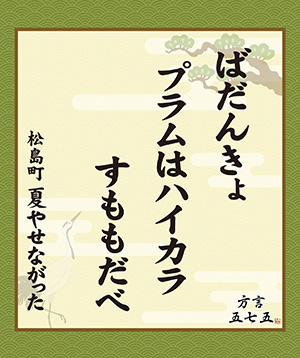 ばだんきょ
プラムはハイカラ
すももだべ
松島町 夏やせながった
方言
五七五